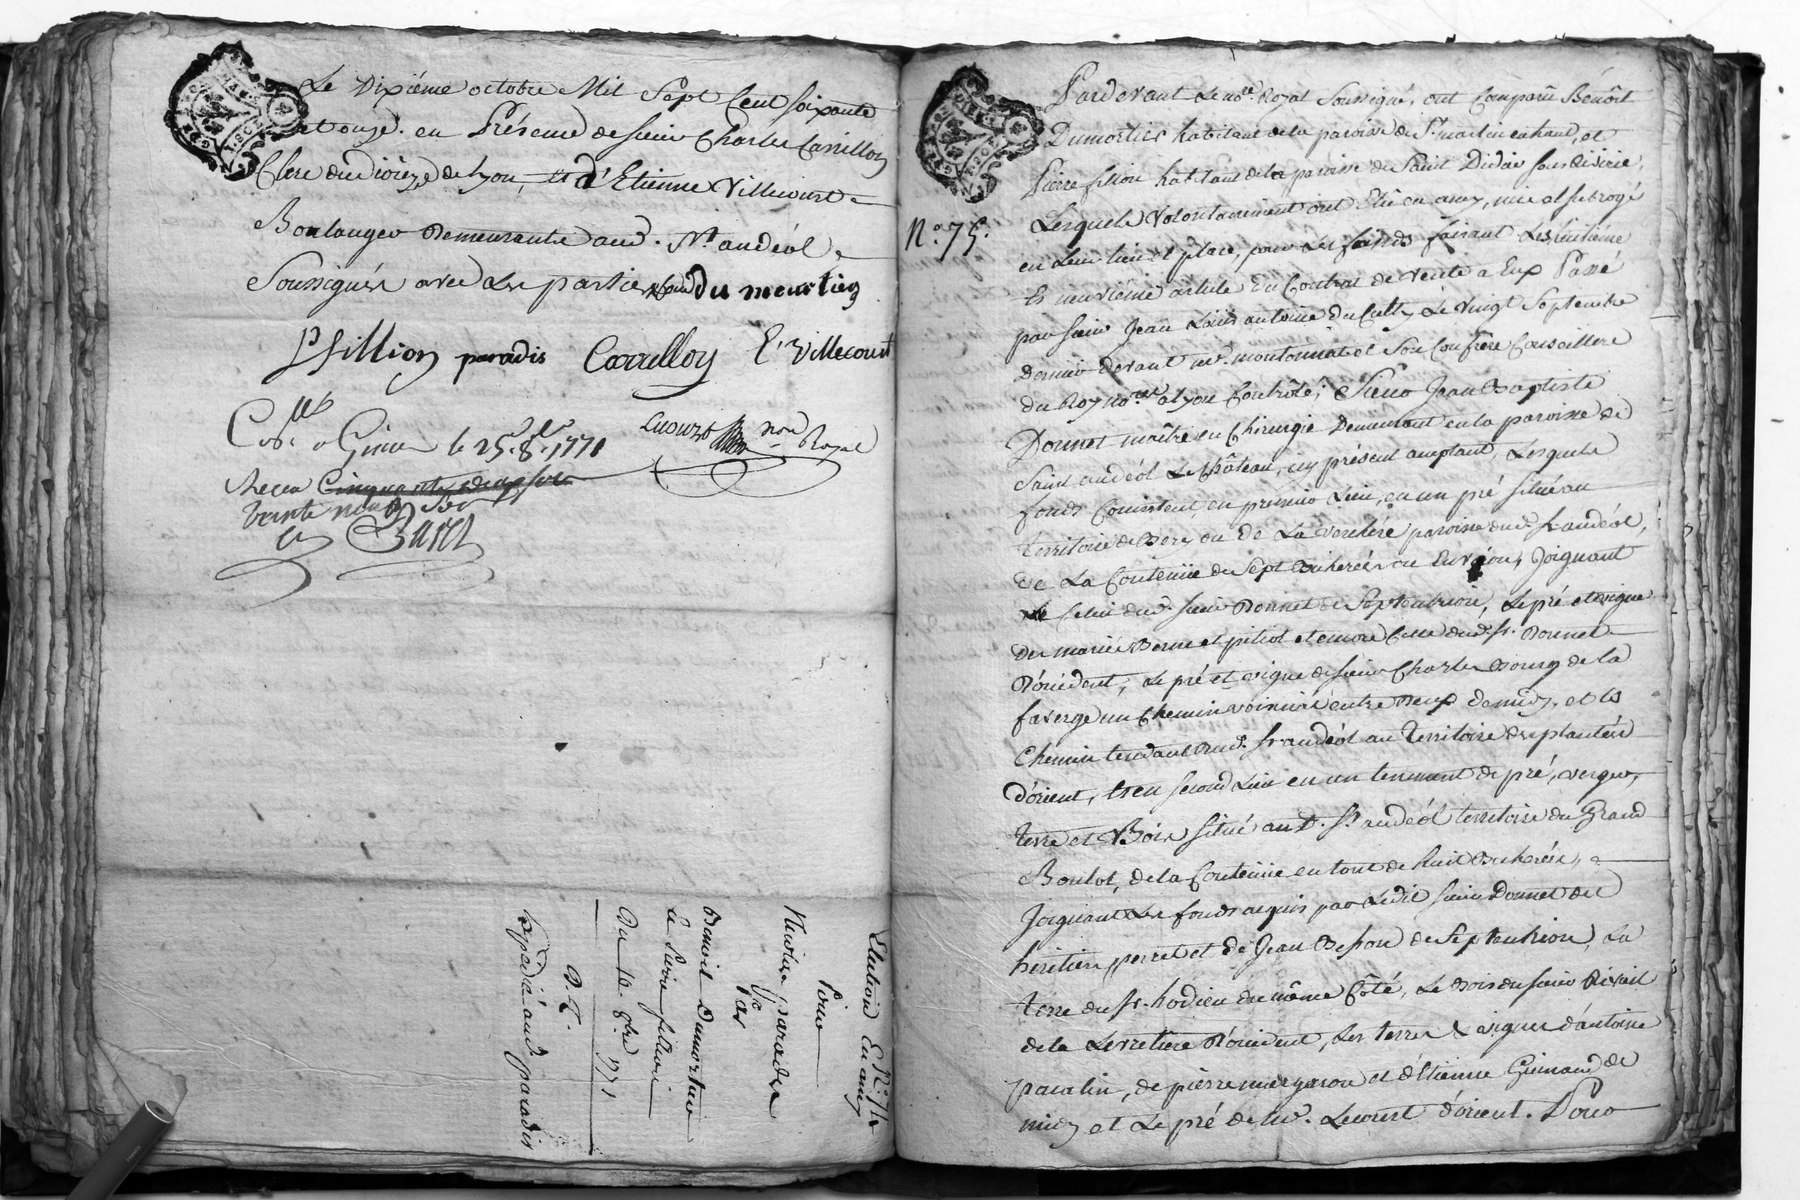 Le Dixiéme octobre Mil Sept Cent soixante
et onze. en Présence de sieur Charles Carrillon
Clerc du diocèze de Lyon, et d'Etienne Villecourt
Boulanger Demeurants aud. St. andéol
Soussignés avec les parties
du mourtier
P fillion paradis Carrillon E. Villecourt
Lecourt nore Royal
le 25. 8bre. 1771
Receu
Vingt neuf sols
Election En amy
Pour
Nicolas paradis
Par
Benoit Dumortier
& Pierre fillion
Du 10. 8bre 1771
Expédié aud. paradis
E.R. 74
Pardevant Le nore. Royal Soussigné, ont Comparû Benôit
Dumortier habitant de la paroisse de St. martin en haut, et
Pierre fillion habitant de la paroisse de Saint Didier sous Riverie,
Lesquels Volontairement ont Elû en amy, mis et subrogé
en Leur Lieu et place, pour Les fonds faisant Les huitième
Et neuvième article du Contrat de vente a Eux Passé
par sieur Jean Louis antoine du Culty Le Vingt Septembre
Dernier devant me. montonnat et Son Confrère Conseillers
du Roy nores. a Lyon Contrôlé; Sieur Jean Baptiste
Donnet maître en Chirurgie Demeurant en la paroisse de
Saint andéol Le Château, icy présent acceptant, Lesquels
fonds Consistent, en premier Lieu, en un pré situé au
territoire de ou de La paroisse dud. St. andéol,
de La Contenüe de Sept Bicherées ou Environ, Joignant
Celui dud. sieur Donnet de Septentrion, Le pré et vigne
des mariés et encore Celle dud. Sr. Donnet
d'occident, Le pré et vigne de sieur Charles Bourg de la
faverge un Chemin voisinal entre Deux de midy, et le
Chemin tendant dud. St. andéol au Territoire des plantées
d'orient, Et en second Lieu en un tenement de pré, verger,
terre et Bois situé aud. St. andéol territoire du Grand
Boulot, de la Contenüe en tout de huit Bicherées,
Joignant Les fonds acquis par Ledit sieur Donnet des
héritiers perret et de Jean Besson de Septentrion, La
terre du Sr. hodieu du même Côté, Le Bois du sieur
de la d'occident, Les terres & vignes d'antoine
paralin, de pierre et d'Etienne Guinand de
midy et Le pré de me. Lecourt d'orient. Pour
No. 75.